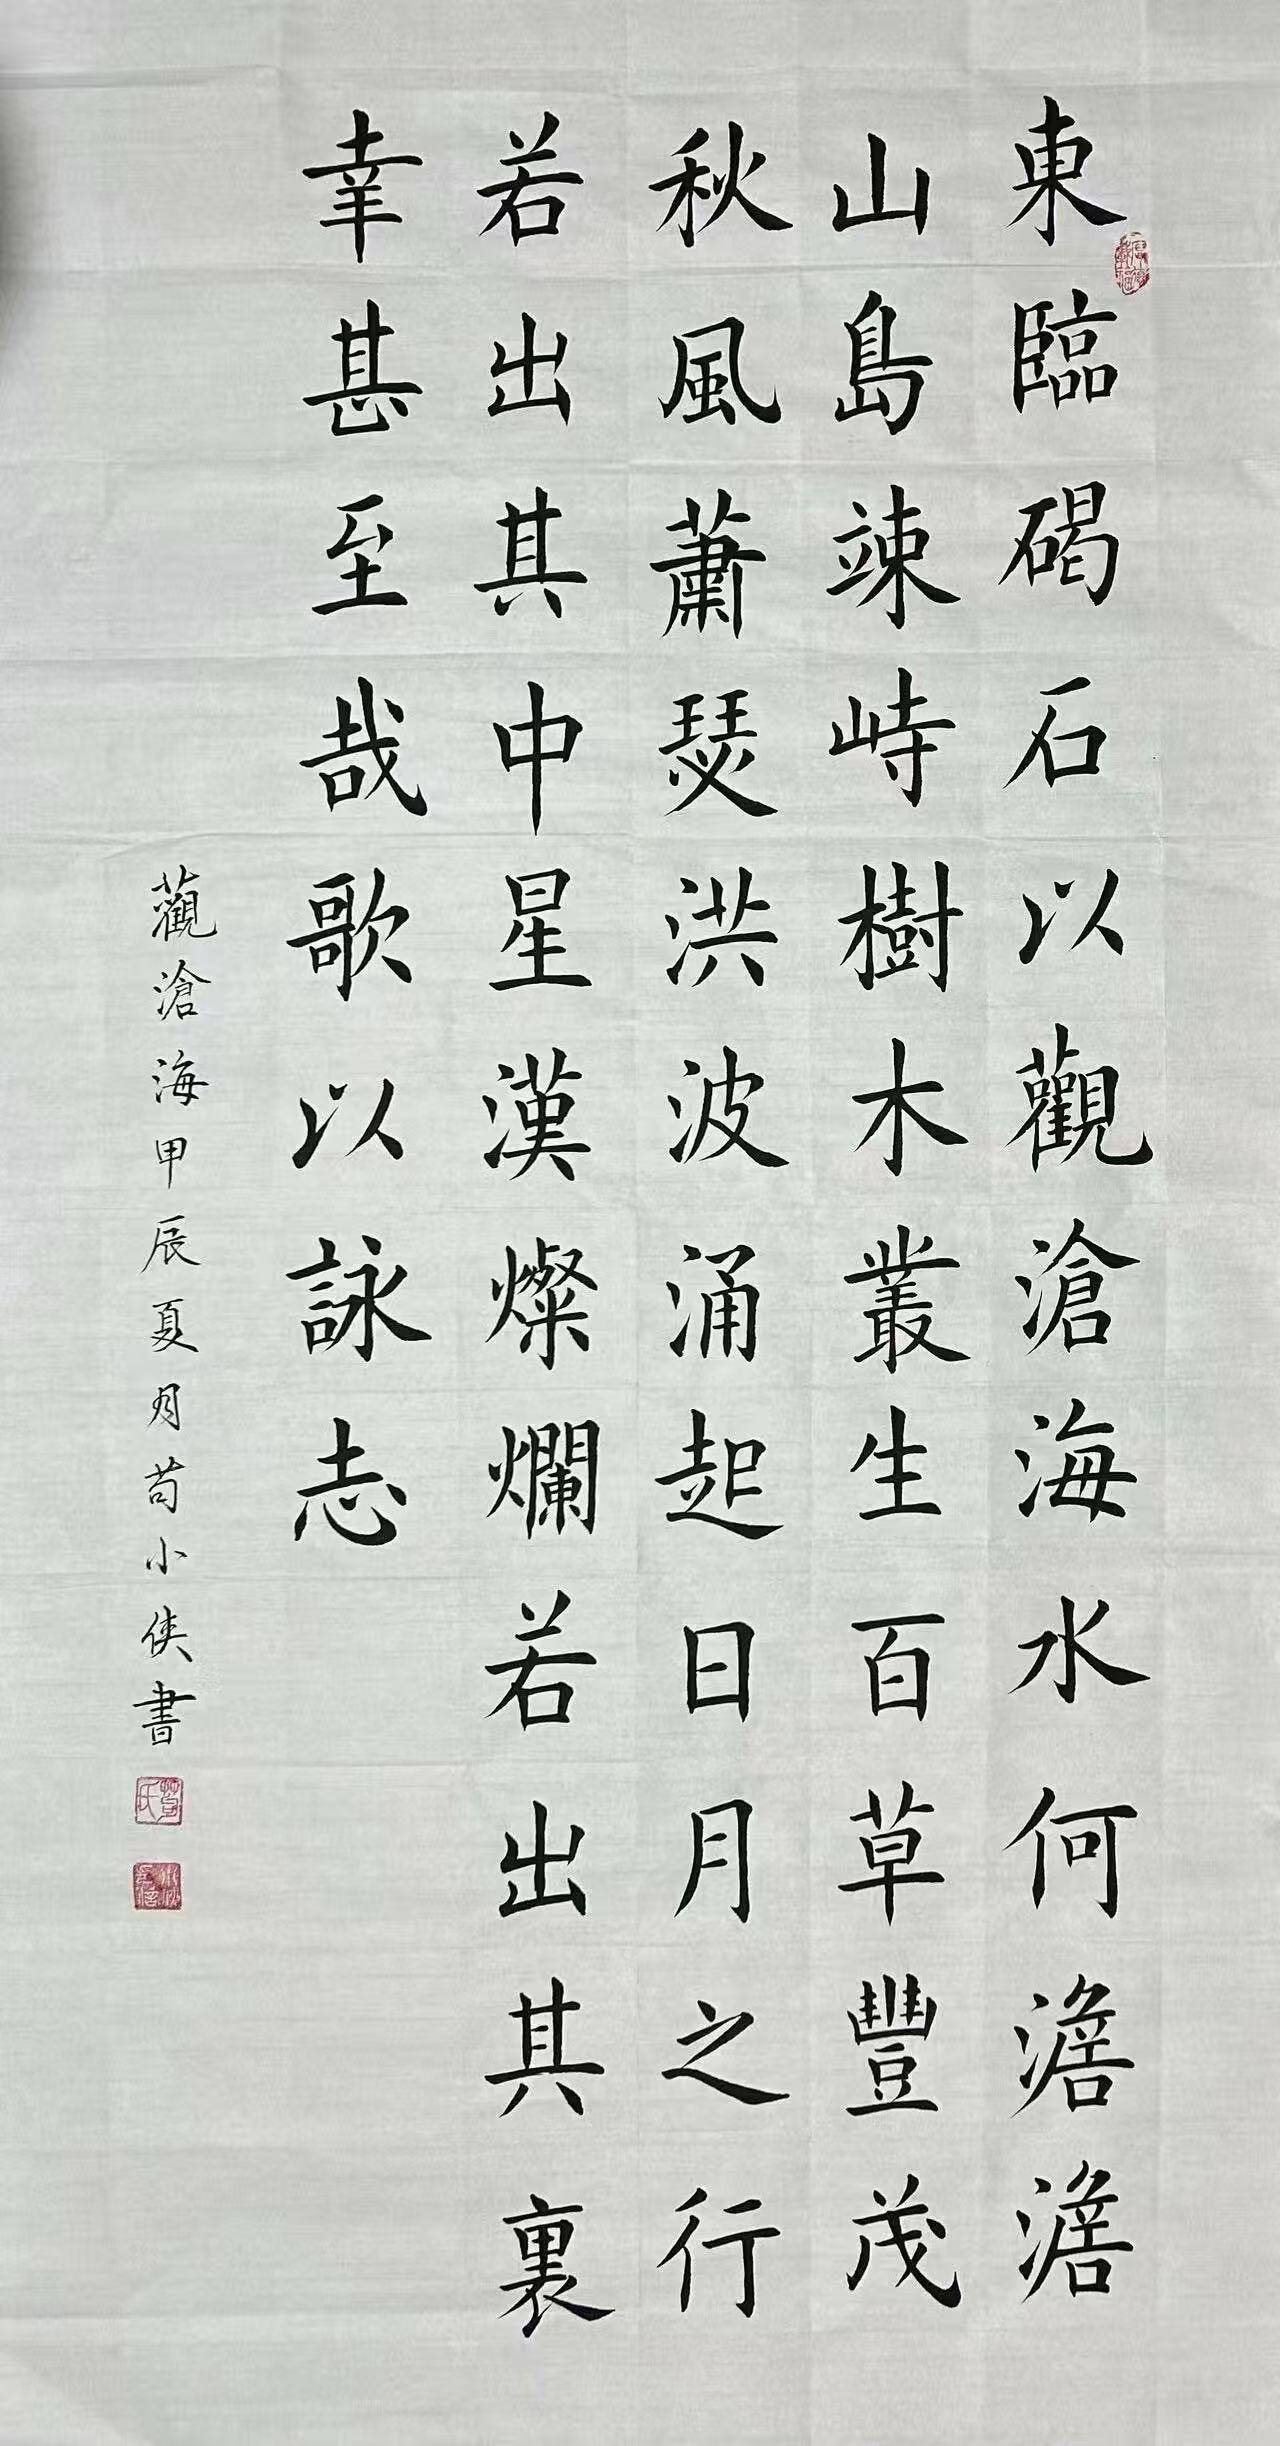 東臨碣石以觀滄海水何澹澹
山島竦峙樹木叢生百草豐茂
秋風蕭瑟洪波涌起日月之行
若出其中星漢燦爛若出其裏
幸甚至哉歌以詠志
觀滄海甲辰夏月苟小侠書